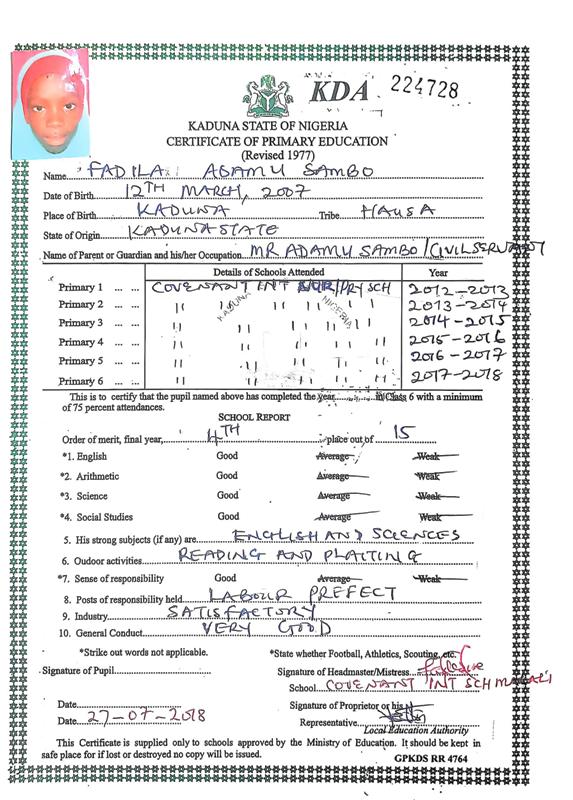 KDA 224728
KADUNA STATE OF NIGERIA
CERTIFICATE OF PRIMARY EDUCATION
(Revised 1977)
Name FADILA ADAMU SAMBO
Date of Birth 12TH MARCH, 2007
Place of Birth KADUNA Tribe HAUSA
State of Origin KADUNA STATE
Name of Parent or Guardian and his/her Occupation. MR ADAMU SAMBO/CIVIL SERVANT
Details of Schools Attended Year
Primary 1 ... ... COVENANT INT NUR/PRY SCH 2012-2013
Primary 2 ... ... 〃 〃 〃 〃 〃 2013-2014
Primary 3 ... ... 〃 〃 〃 〃 2014-2015
Primary 4 ... ... 〃 〃 〃 〃 〃 2015-2016
Primary 5 ... ... 〃 〃 〃 〃 〃 2016-2017
Primary 6 ... ... 〃 〃 〃 〃 〃 2017-2018
KADUNA NIGERIA
This is to certify that the pupil named above has completed the year in Class 6 with a minimum
of 75 percent attendances.
SCHOOL REPORT
Order of merit, final year, 4TH place out of 15
*1. English Good Average Weak
*2. Arithmetic Good Average Weak
*3. Science Good Average Weak
*4. Social Studies Good Average Weak
5. His strong subjects (if any) are ENGLISH AND SCIENCES
6. Oudoor activities READING AND PLAITING
*7. Sense of responsibility Good Average Weak
8. Posts of responsibility held LABOUR PREFECT
9. Industry SATISFACTORY
10. General Conduct VERY GOOD
*Strike out words not applicable. *State whether Football, Athletics, Scouting, etc.
Signature of Pupil Signature of Headmaster/Mistress
School COVENANT INT SCH
Date Signature of Proprietor or his
Date 27-07-2018 Representative
Local Education Authority
This Certificate is supplied only to schools approved by the Ministry of Education. It should be kept in
safe place for if lost or destroyed no copy will be issued.
GPKDS RR 4764